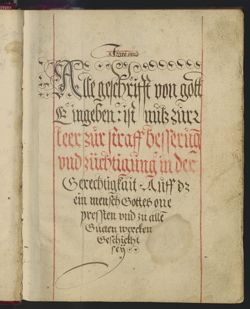 Alle geschrifft von gott
Eingeben ist nutz zur
leer zur straff besserug
vnd züchtigung in der
Gerechtigkait Auff dz
ein mensch Gottes one
pressten vnd zu allen
Guten wercken
Geschickt
sey